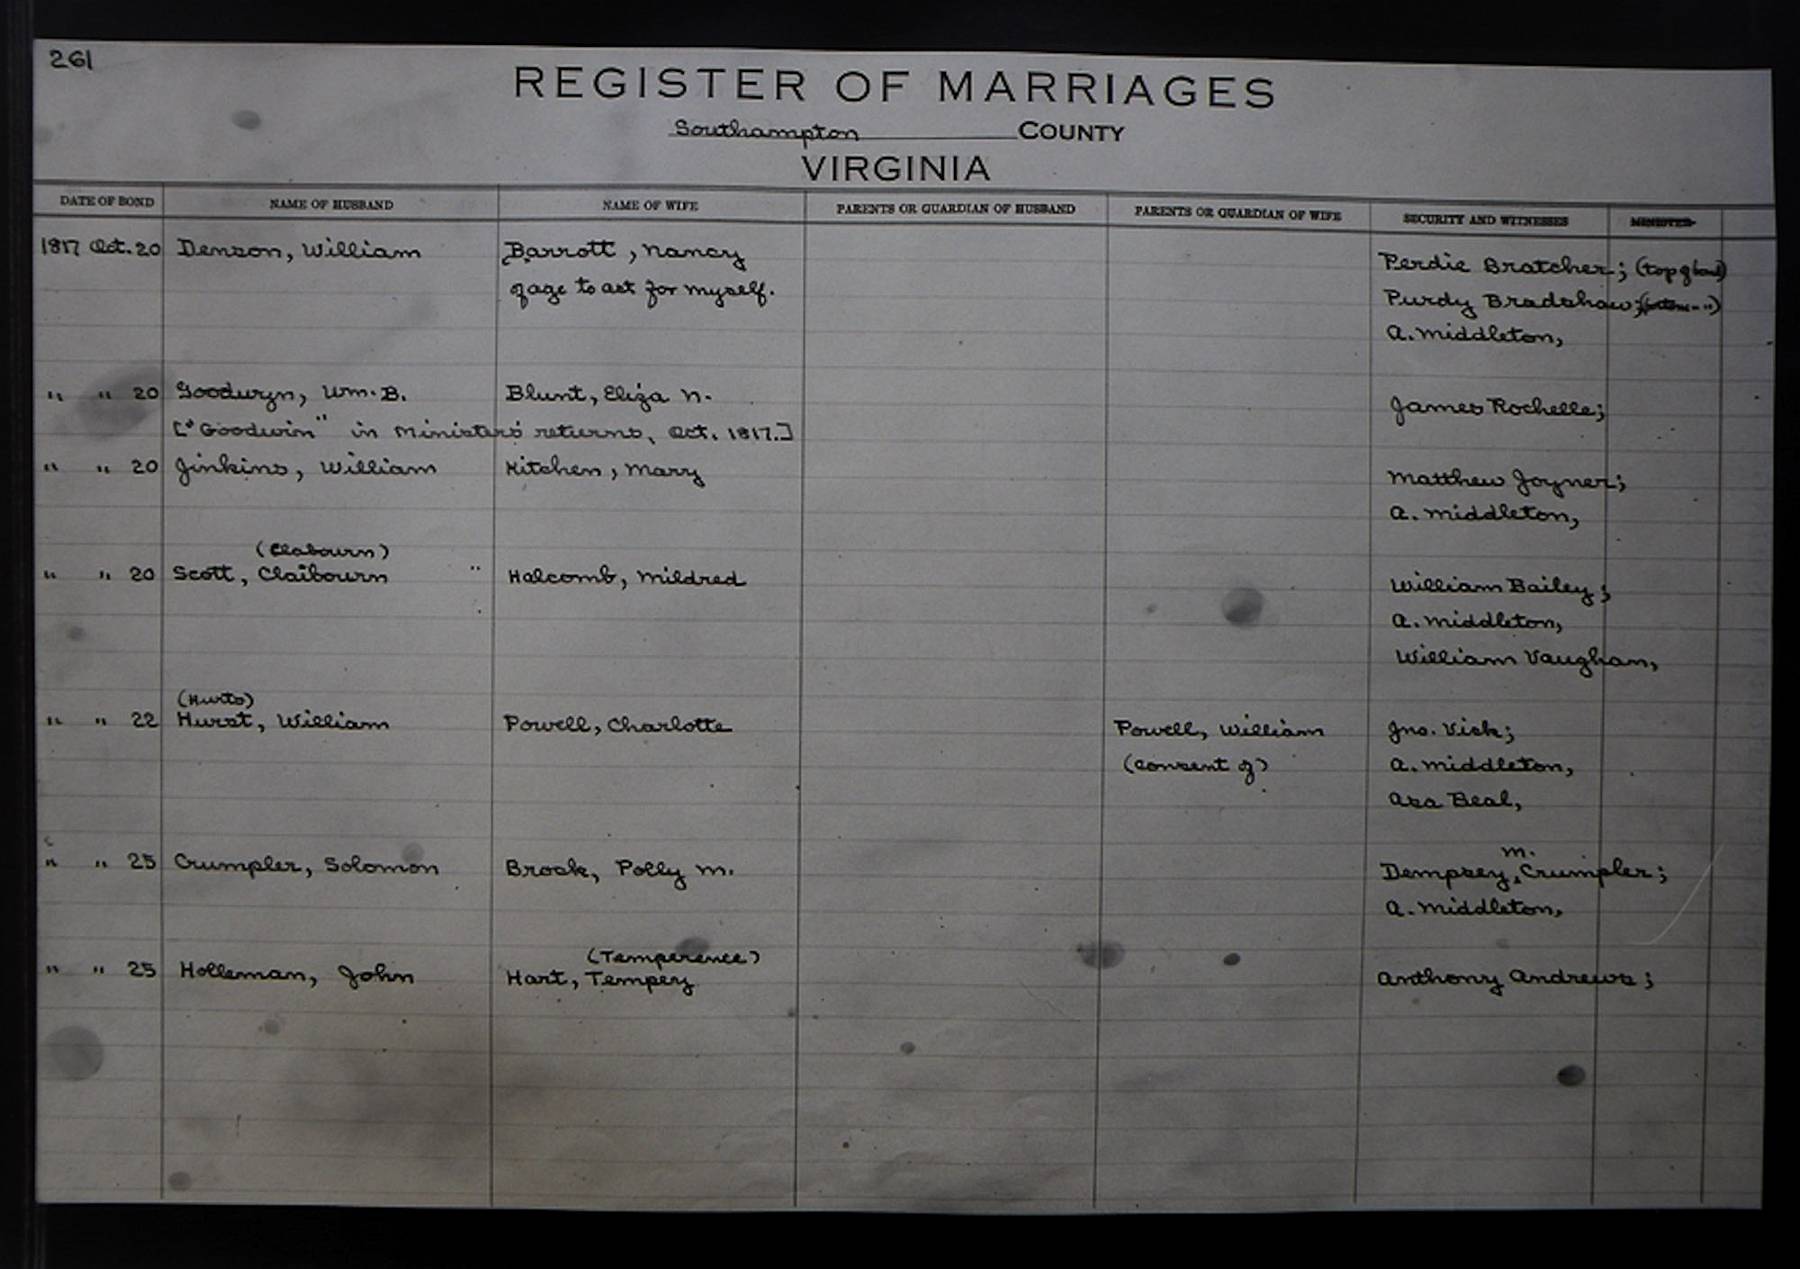 261
REGISTER OF MARRIAGES
Southampton COUNTY
VIRGINIA
DATE OF BOND NAME OF HUSBAND NAME OF WIFE PARENTS OR GUARDIAN OF HUSBAND PARENTS OR GUARDIAN OF WIFE SECURITY AND WITNESSES MINISTER
1817 Oct. 20 Denson, William Barrott, Nancy Perdie Bratcher; (top of bond)
of age to act for myself. Purdy Bradshaw;
A. Middleton,
" " 20 Goodwyn, Wm. B. Blunt, Eliza N. James Rochelle;
["Goodwin" in Ministers' returns, Oct. 1817.]
" " 20 Jinkins, William Kitchen, Mary Matthew Joyner;
A. Middleton,
(Clabourn)
" " 20 Scott, Claibourn " Halcomb, Mildred William Bailey;
A. Middleton,
William Vaughan,
(Hurts)
" " 22 Hurst, William Powell, Charlotte Powell, William Jno. Vick;
(consent of) A. Middleton,
Asa Beal,
M.
" " 25 Crumpler, Solomon Brock, Polly M. Dempsey, Crumpler;
A. Middleton,
(Temperence)
" " 25 Holleman, John Hart, Tempey Anthony Andrews;